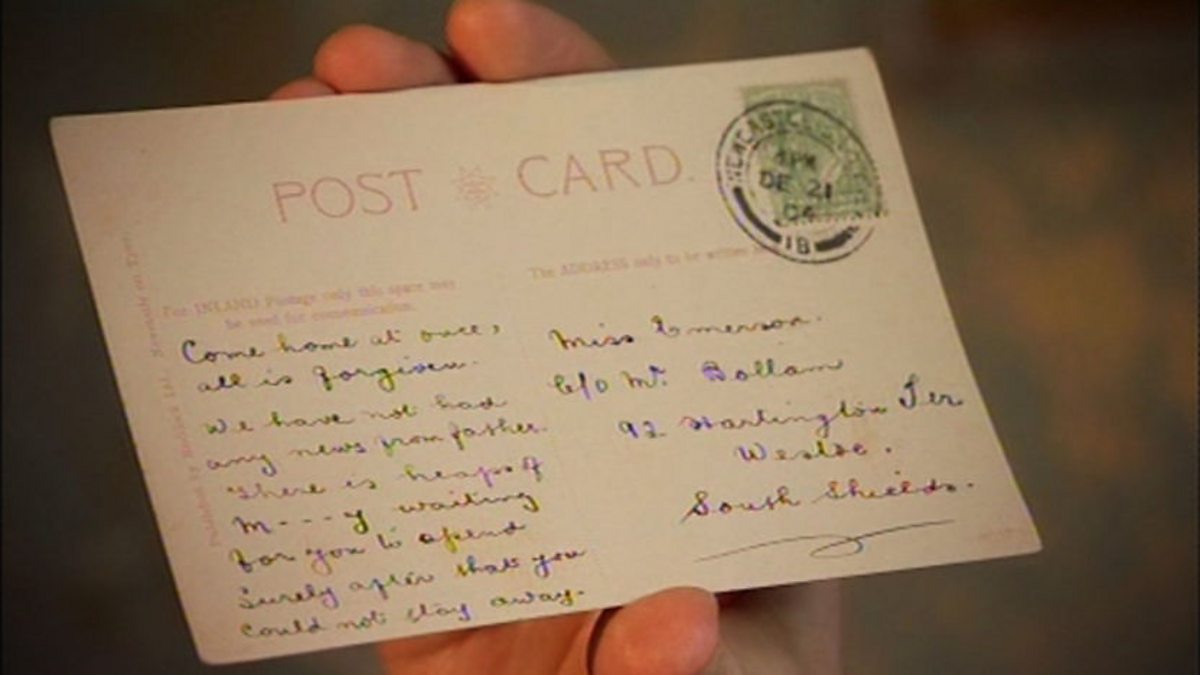 POST CARD.
NEWCASTLE
4 PM
DE 21
04
18
For INLAND Postage only this space may
be used for communication.
The ADDRESS only to be written
Come home at once,
all is forgiven.
We have not had
any news from father.
There is heaps of
m---y waiting
for you to spend
Surely after that you
could not stay away.
Miss Emerson.
C/o Mr. Bollam
92 Hartington Ter
Westoe.
South Shields.